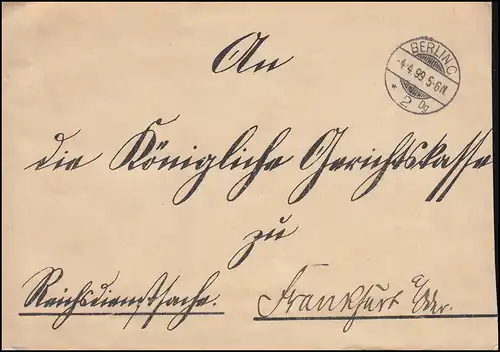 An
BERLIN C.
-4.4.99.5-6N.
* 2 Dg
die Königliche Gerichtskasse
zu
Reichsdienstsache.
Frankfurt a/Oder.